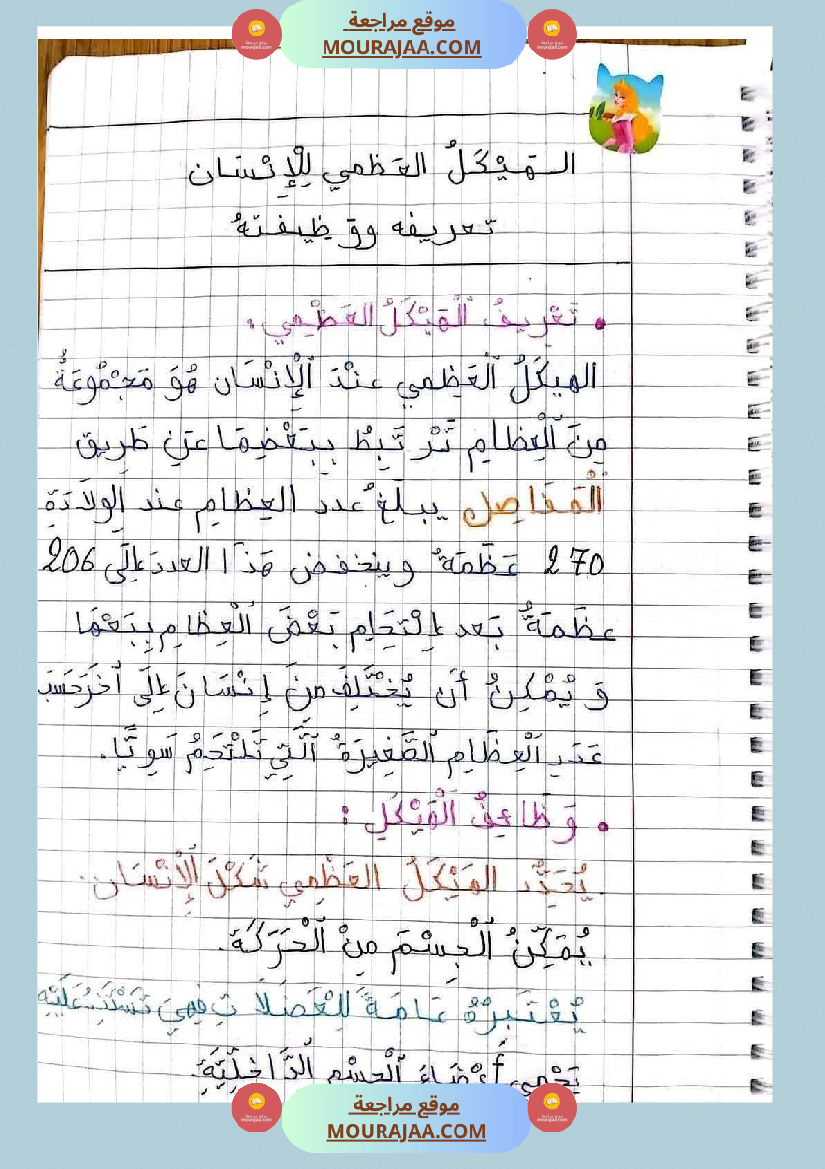 موقع مراجعة
MOURAJAA.COM
الهَيْكَلُ العَظمي لِلْإِنْسَان
تعريفه ووظيفتهُ
• تَعْرِيفُ الْهَيْكَلُ العَظْمِي :
الهيكَلُ الْعَظِمي عنْدَ الْإِنْسَان هُوَ مَجْمُوعَةُ
مِنَ الْعِظامِ تَرْتَبِطُ بِبَعْضِهَا عَنِ طَرِيق
الْمَفَاصِل يبلَغُ عددَ العِظامِ عند الِولَادَةِ
270 عَظْمَةُ وينخفض هَذَا العددَ إلَى 206
عظَمَةٌ بَعد إلْتِحَامِ بَعْضَ الْعِظامِ بِبَعْهَا
وَ يُمْكِنُ أَن يُخْتَلِفَ مِنَ إِنْسَانَ إلَى آخَرَ حَسَبَ
عَدَدِ الْعِظَامِ الصَّغِيرَةُ الَّتِي تَلْتَحِمُ سَوِيًّا.
• وَظَائِفُ الْهَيْكَلِ :
يُحَدِّدُ الهَيْكَلُ العَظْمِي شَكْلَ الْإِنْسَان.
يُمَكِّنُ الْجِسْمَ مِنْ الْحَرَكَة.
يُعْتَبَرُ دَعَامَةً لِلْعَضَلَاتِ فَهِيَ تَسْتَنِدُ عَلَيْهِ
يَحْمِي أَعْضَاءَ الْجِسْمِ الدَّاخِلِيَّةِ
موقع مراجعة
MOURAJAA.COM